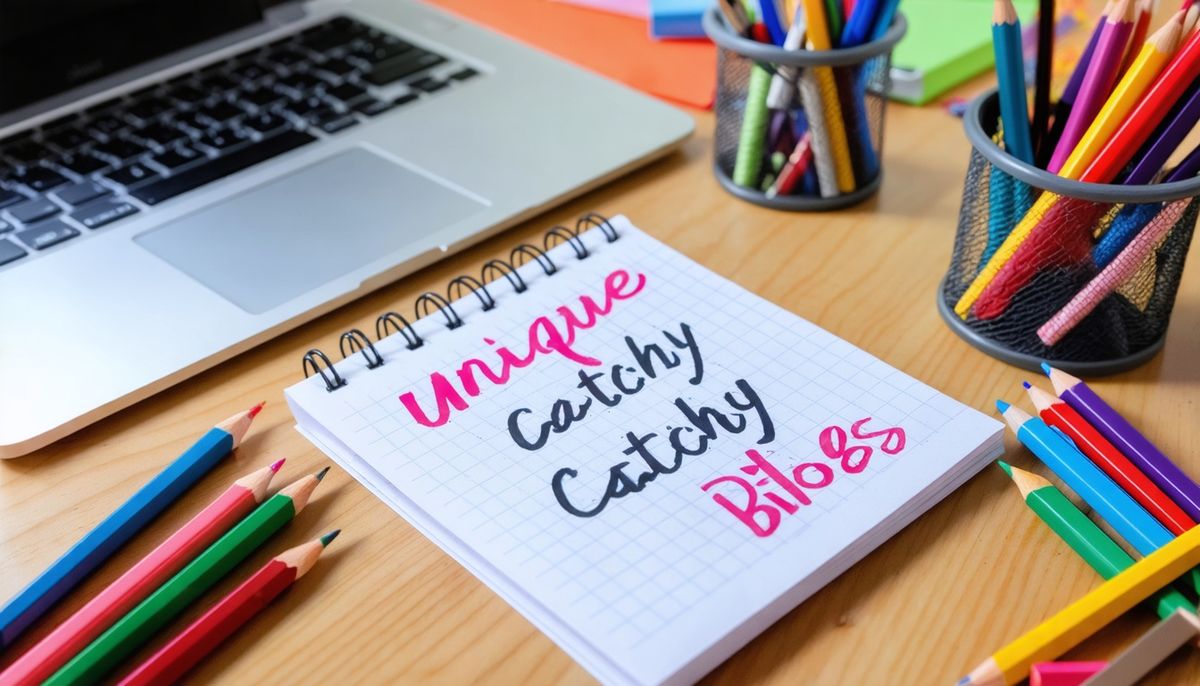 Unique
catchy
Catchy
Bilogs